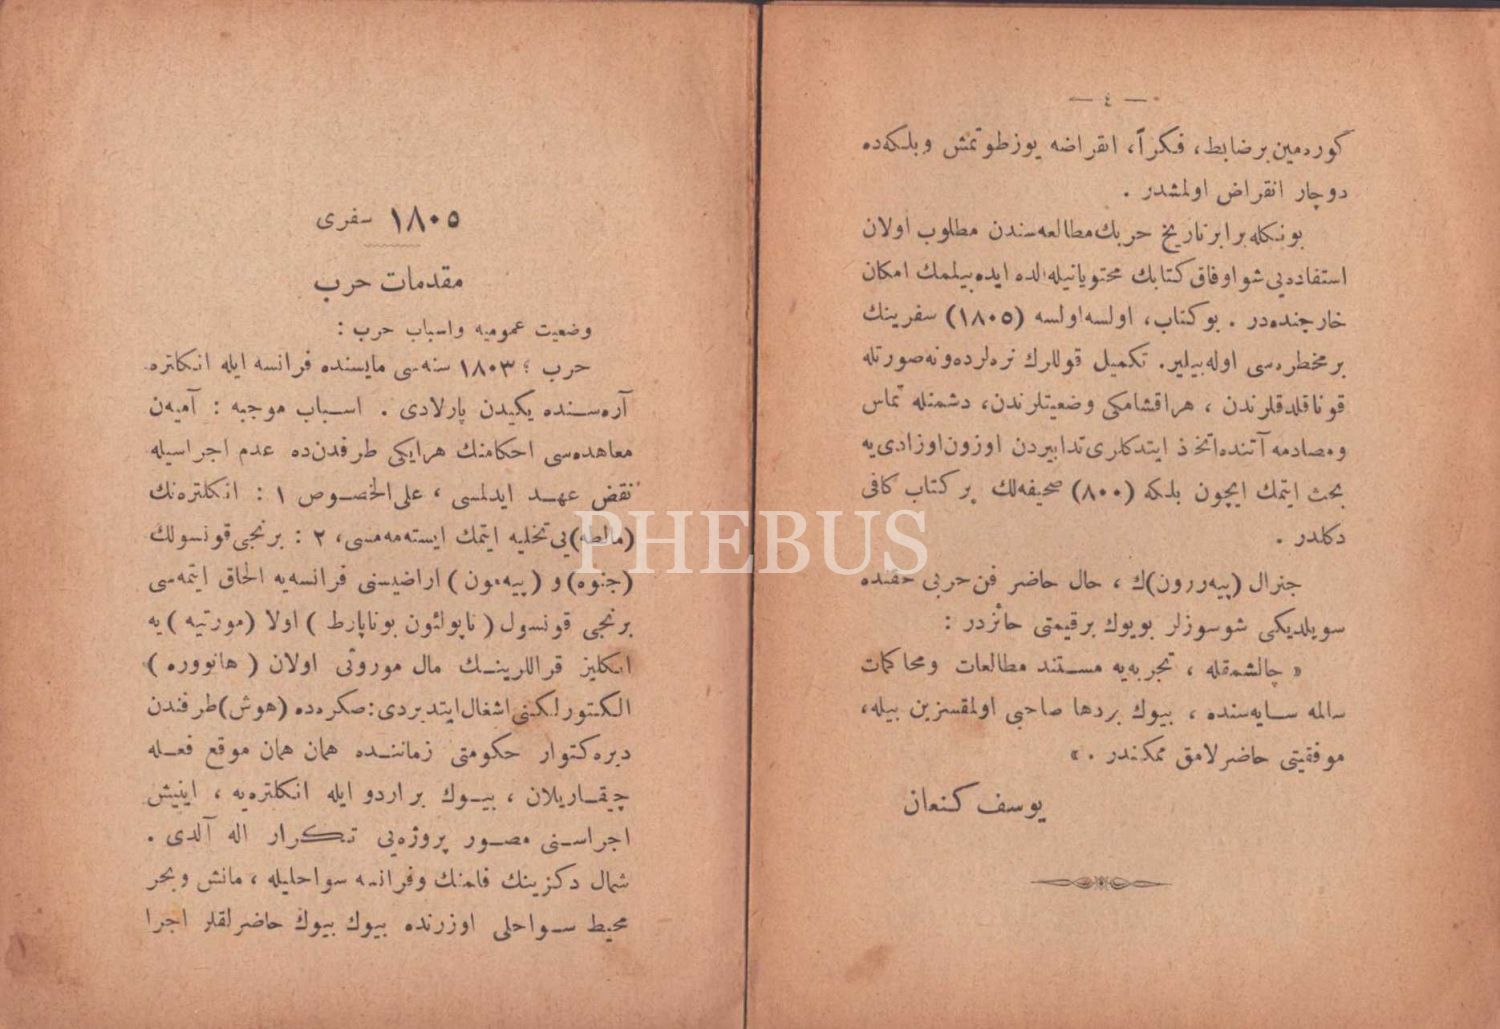 — ٤ —
كورەمین برضابط، فكراً، انقراضه یوزطوتمش وبلكه‌ده
دوچار انقراض اولمشدر .
بونكله برابر تاریخ حربك مطالعه‌سندن مطلوب اولان
استفاده‌یی شو اوفاق كتابك محتویاتیله الده ایده‌بیلمك امكان
خارجنده‌در . بوكتاب، اولسه اولسه (١٨٠٥) سفرینك
برمخطره‌سی اوله‌بیلیر. تكمیل قوللرك نره‌لرده ونه‌صورتله
قوناقلدقلرندن ، هراقشامكی وضعیتلرندن، دشمنله تماس
ومصادمه آننده اتخاذ ایتدكلری تدابیردن اوزون اوزادی‌یه
بحث ایتمك ایچون بلكه (٨٠٠) صحیفه‌لك برکتاب كافی
دكلدر .
جنرال (پیه‌ررون)ك ، حال حاضر فن حربی حقنده
سویلدیكی شوسوزلر بویوك برقیمتی حائزدر :
« چالشمقله ، تجربه‌یه مستند مطالعات ومحاكمات
سالمه سایه‌سنده ، بیوك بردها صاحبی اولمقسزین بیله،
موفقیتی حاضرلامق ممكندر . »
یوسف كنعان
١٨٠٥ سفری
مقدمات حرب
وضعیت عمومیه واسباب حرب :
حرب ؛ ١٨٠٣ سنه‌سی مایسنده فرانسه ایله انكلتره
آره‌سنده یكیدن پارلادی . اسباب موجبه : آمیه‌ن
معاهده‌سی احكامنك هرایكی طرفدن‌ده عدم اجراسیله
نقض عهد ایدلمسی ، علی‌الخصوص ١ : انكلتره‌نك
(مالطه)یی تخلیه ایتمك ایسته‌مه‌مسی، ٢ : برنجی قونسولك
(جنوه) و (پیه‌مون) اراضیسنی فرانسه‌یه الحاق ایتمه‌سی
برنجی قونسول (ناپولئون بوناپارط) اولا (مورتیه)یه
انكلیز قراللرینك مال موروثی اولان (هانووره)
الكتورلكنی اشغال ایتدیردی: صكره‌ده (هوش) طرفندن
دیره‌كتوار حكومتی زماننده همان همان موقع فعله
چیقاریلان ، بیوك بر اردو ایله انكلتره‌یه ، اینیش
اجراسنی مصور پروژه‌یی تكرار اله آلدی .
شمال دكزینك فلمنك وفرانسه سواحلیله ، مانش وبحر
محیط سواحلی اوزرنده بیوك بیوك حاضرلقلر اجرا
PHEBUS